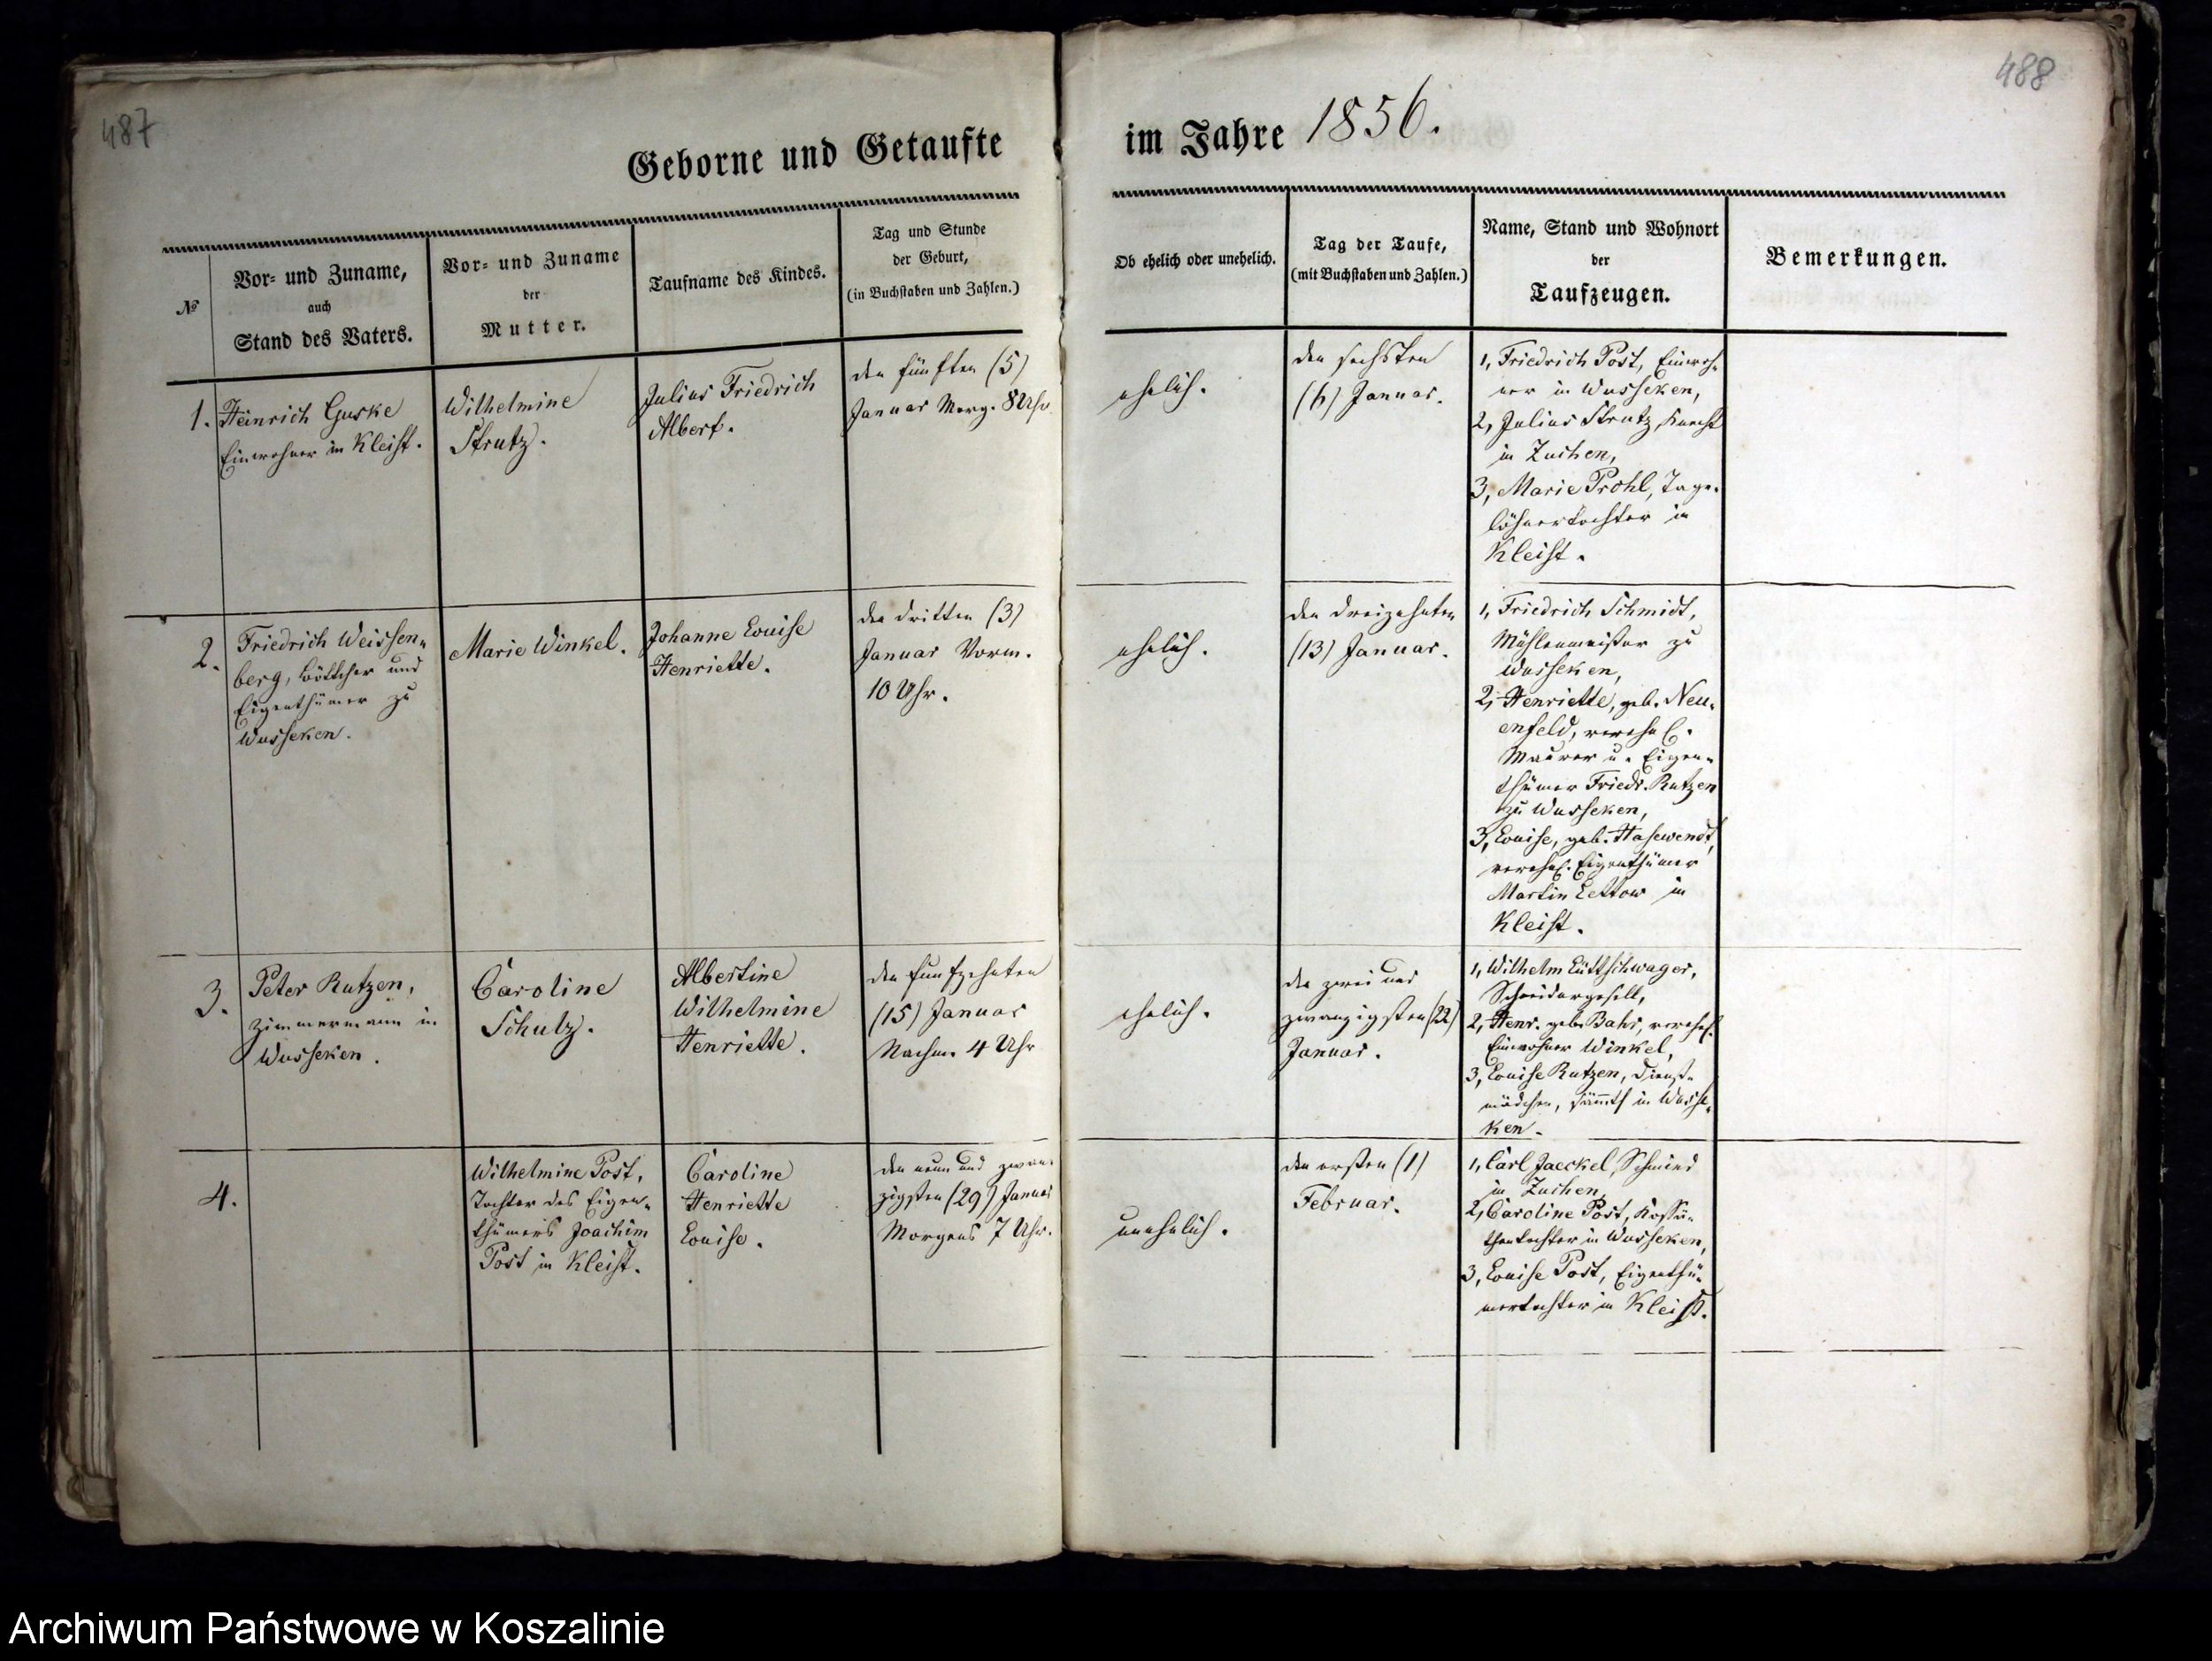 487
488
Geborne und Getaufte
im Jahre 1856.
№
Vor- und Zuname,
auch
Stand des Vaters.
Vor- und Zuname
der
Mutter.
Taufname des Kindes.
Tag und Stunde
der Geburt,
(in Buchstaben und Zahlen.)
Ob ehelich oder unehelich.
Tag der Taufe,
(mit Buchstaben und Zahlen.)
Name, Stand und Wohnort
der
Taufzeugen.
Bemerkungen.
1.
Heinrich Guske
Einwohner in Kleist.
Wilhelmine
Strutz.
Julius Friedrich
Albert.
den fünften (5)
Januar Morg. 8 Uhr
ehelich.
den sechsten
(6) Januar.
1, Friedrich Post, Einwoh-
ner in Wusseken,
2, Julius Strutz, Knecht
in Zuchen,
3, Marie Prohl, Tage-
löhnertochter in
Kleist.
2.
Friedrich Weissen-
berg, Böttcher und
Eigenthümer zu
Wusseken.
Marie Winkel.
Johanne Louise
Henriette.
den dritten (3)
Januar Vorm.
10 Uhr.
ehelich.
den dreizehnten
(13) Januar.
1, Friedrich Schmidt,
Mühlenmeister zu
Wusseken,
2, Henriette, geb. Neu-
enfeld, verehel.
Maurer u. Eigen-
thümer Friedr. Rutzen
zu Wusseken,
3, Louise, geb. Hasewendt,
verehel. Eigenthümer
Martin Lettow in
Kleist.
3.
Peter Rutzen,
Zimmermann in
Wusseken.
Caroline
Schulz.
Albertine
Wilhelmine
Henriette.
den funfzehnten
(15) Januar
Nachm. 4 Uhr
ehelich.
den zwei und
zwanzigsten (22)
Januar.
1, Wilhelm Lüttschwager,
Schneidergesell,
2, Henr. geb. Bahr, verehel.
Einwohner Winkel,
3, Louise Rutzen, Dienst-
mädchen, sämmtl. in Wusse-
ken.
4.
Wilhelmine Post,
Tochter des Eigen-
thümers Joachim
Post in Kleist.
Caroline
Henriette
Louise.
den neun und zwan-
zigsten (29) Januar
Morgens 7 Uhr.
unehelich.
den ersten (1)
Februar.
1, Carl Jaeckel, Schmied
in Zuchen,
2, Caroline Post, Kossä-
thentochter in Wusseken,
3, Louise Post, Eigenthü-
mertochter in Kleist.
Archiwum Państwowe w Koszalinie